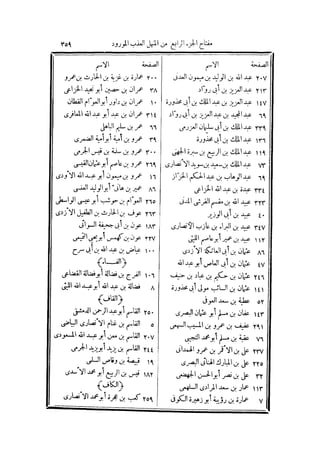 ٣٥٩ مفتاح الجزء الرابع من المنهل العذب المورود
الصفحة الاسم
٢٠٧ عبد الله بن الوليد بن ميمون العدنى
٢١٣ عبد العزيز بن أبى رواد
١٤٧ عبد العزيز بن عبد الملك بن أبى محذورة
٦٩ عبد المجيد بن عبد العزيز بن أبى رواد
٢٣٩ عبد الملك بن أبى سليمان العرزمى
١٣٦ عبد الملك بن أبى محذورة
١١٩ عبد الملك بن الربيع بن سبرة الجهنى
٧٣ عبد الملك بن سعيد بن سويد الأنصارى
٦٩ عبد الوهاب بن عبد الحكم الخزاز
٣٣٤ عبدة بن عبد الله الخزاعى
٢٣٣ عبيد الله بن مقسم القرشى المدنى
٤٠ عبيد بن أبى الوزير
٣٤٧ عبيد بن البراء بن عازب الأنصارى
١٥٢ عبيد بن عمير أبو عاصم الليثى
٨٦ عثمان بن أبى العاتكة الأزدى
١٨٧ عثمان بن أبى العاص أبو عبد الله
٢٤٦ عثمان بن حكيم بن عباد بن حنيف
١٤١ عثمان بن السائب مولى أبى محذورة
٥٢ عطية بن سعد العوفى
١٤٣ عفان بن مسلم أبو عثمان البصرى
٢٩١ عفيف بن عمرو بن المسيب السهمى
٧٦ عقبة بن مسلم أبو محمد التجيبى
٢٣٧ على بن الأقمر بن عمرو الهمدانى
٣٢٥ على بن المبارك الهنائى البصرى
٣٢ على بن نصر أبو الحسن الجهضمى
١١٣ عمار بن سعد المرادى السلهمى
٧ عمارة بن رؤيبة أبو زهيرة الكوفى
الصفحة الاسم
٢٠٠ عمارة بن غزية بن الحارث بن عمرو
٣٨ عمران بن حصين أبو نجيد الخزاعى
١٠ عمران بن داور أبو العوام القطان
٣١٤ عمران بن عبد أبو عبد الله المعافرى
٦٦ عمرو بن سليم الباهلى
٣٩ عمرو بن أمية أبو أمية الضمرى
٣٠٠ عمرو بن سلمة بن قيس الجرمى
٢٦٩ عمرو بن عاصم أبو عثمان القيسى
١٦ عمرو بن ميمون أبو عبد الله الأودى
٨٦ عمير بن هانئ أبو الوليد العنسى
١١٥ العوام بن حوشب أبو عيسى الواسطى
٢٦٣ عوف بن الحارث بن الطفيل الأزدى
١٨٢ عون بن أبى جحيفة السوائى
٢٣٧ عون بن كهمس أبو يحيى التميمى
١٠٠ عياض بن عبد الله بن أبى سرح
﴿الفـــاء﴾
١٠٦ الفرج بن فضالة أبو فضالة القضاعى
٨ فضالة بن عبد الله أبو عبد الله الليثى
﴿القاف﴾
٢٥٠ القاسم أبو عبد الرحمن الدمشقى
٥ القاسم بن غنام الأنصارى البياضى
٢٠٧ القاسم بن معن أبو عبد الله المسعودى
٢٤٤ القاسم بن يزيد أبو يزيد الجرمى
١٩ قبيصة بن وقاص السلمى
١٨٢ قيس بن الربيع أبو محمد الأسدى
﴿الكاف﴾
٢٥٩ كعب بن عجرة أبو محمد الأنصارى